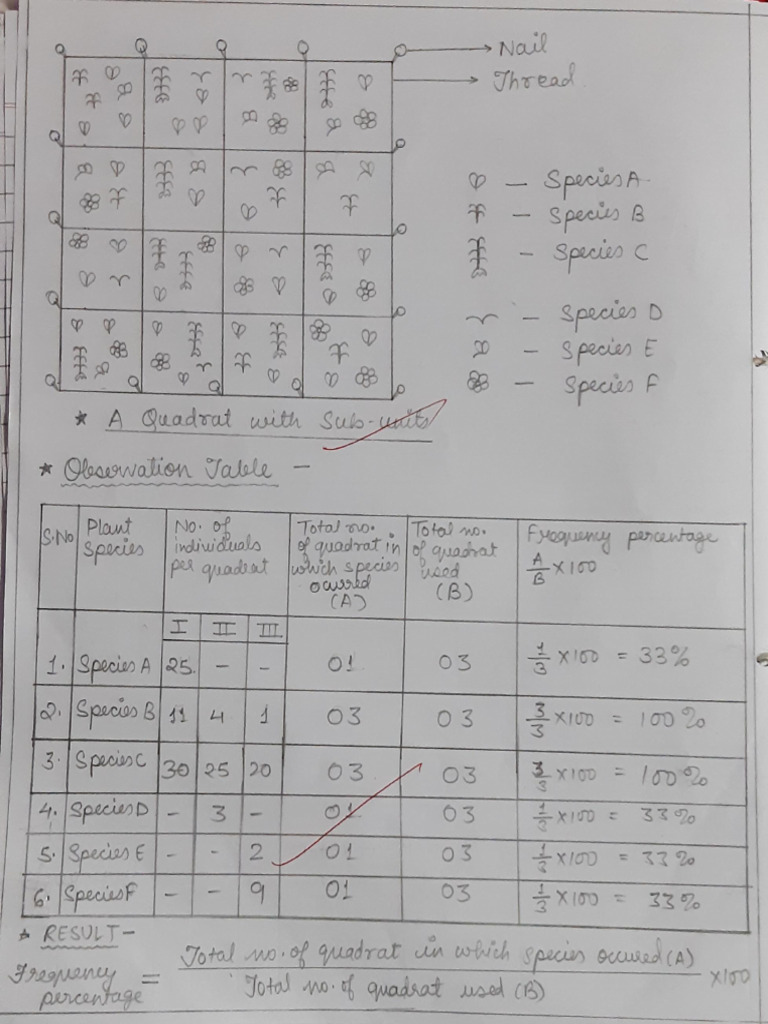 Nail
Thread
— Species A
— Species B
— Species C
— Species D
— Species E
— Species F
* A Quadrat with Sub-units
* Observation Table —
S.No Plant Species No. of individuals per quadrat Total no. of quadrat in which species ocurred (A) Total no. of quadrat used (B) Frequency percentage A/B ×100
I II III
1. Species A 25. - - 01 03 1/3 ×100 = 33%
2. Species B 11 4 1 03 03 3/3 ×100 = 100%
3. Species C 30 25 20 03 03 3/3 ×100 = 100%
4. Species D - 3 - 01 03 1/3 ×100 = 33%
5. Species E - - 2 01 03 1/3 ×100 = 33%
6. Species F - - 9 01 03 1/3 ×100 = 33%
* RESULT-
Frequency percentage = Total no. of quadrat in which species occured (A) / Total no. of quadrat used (B) ×100